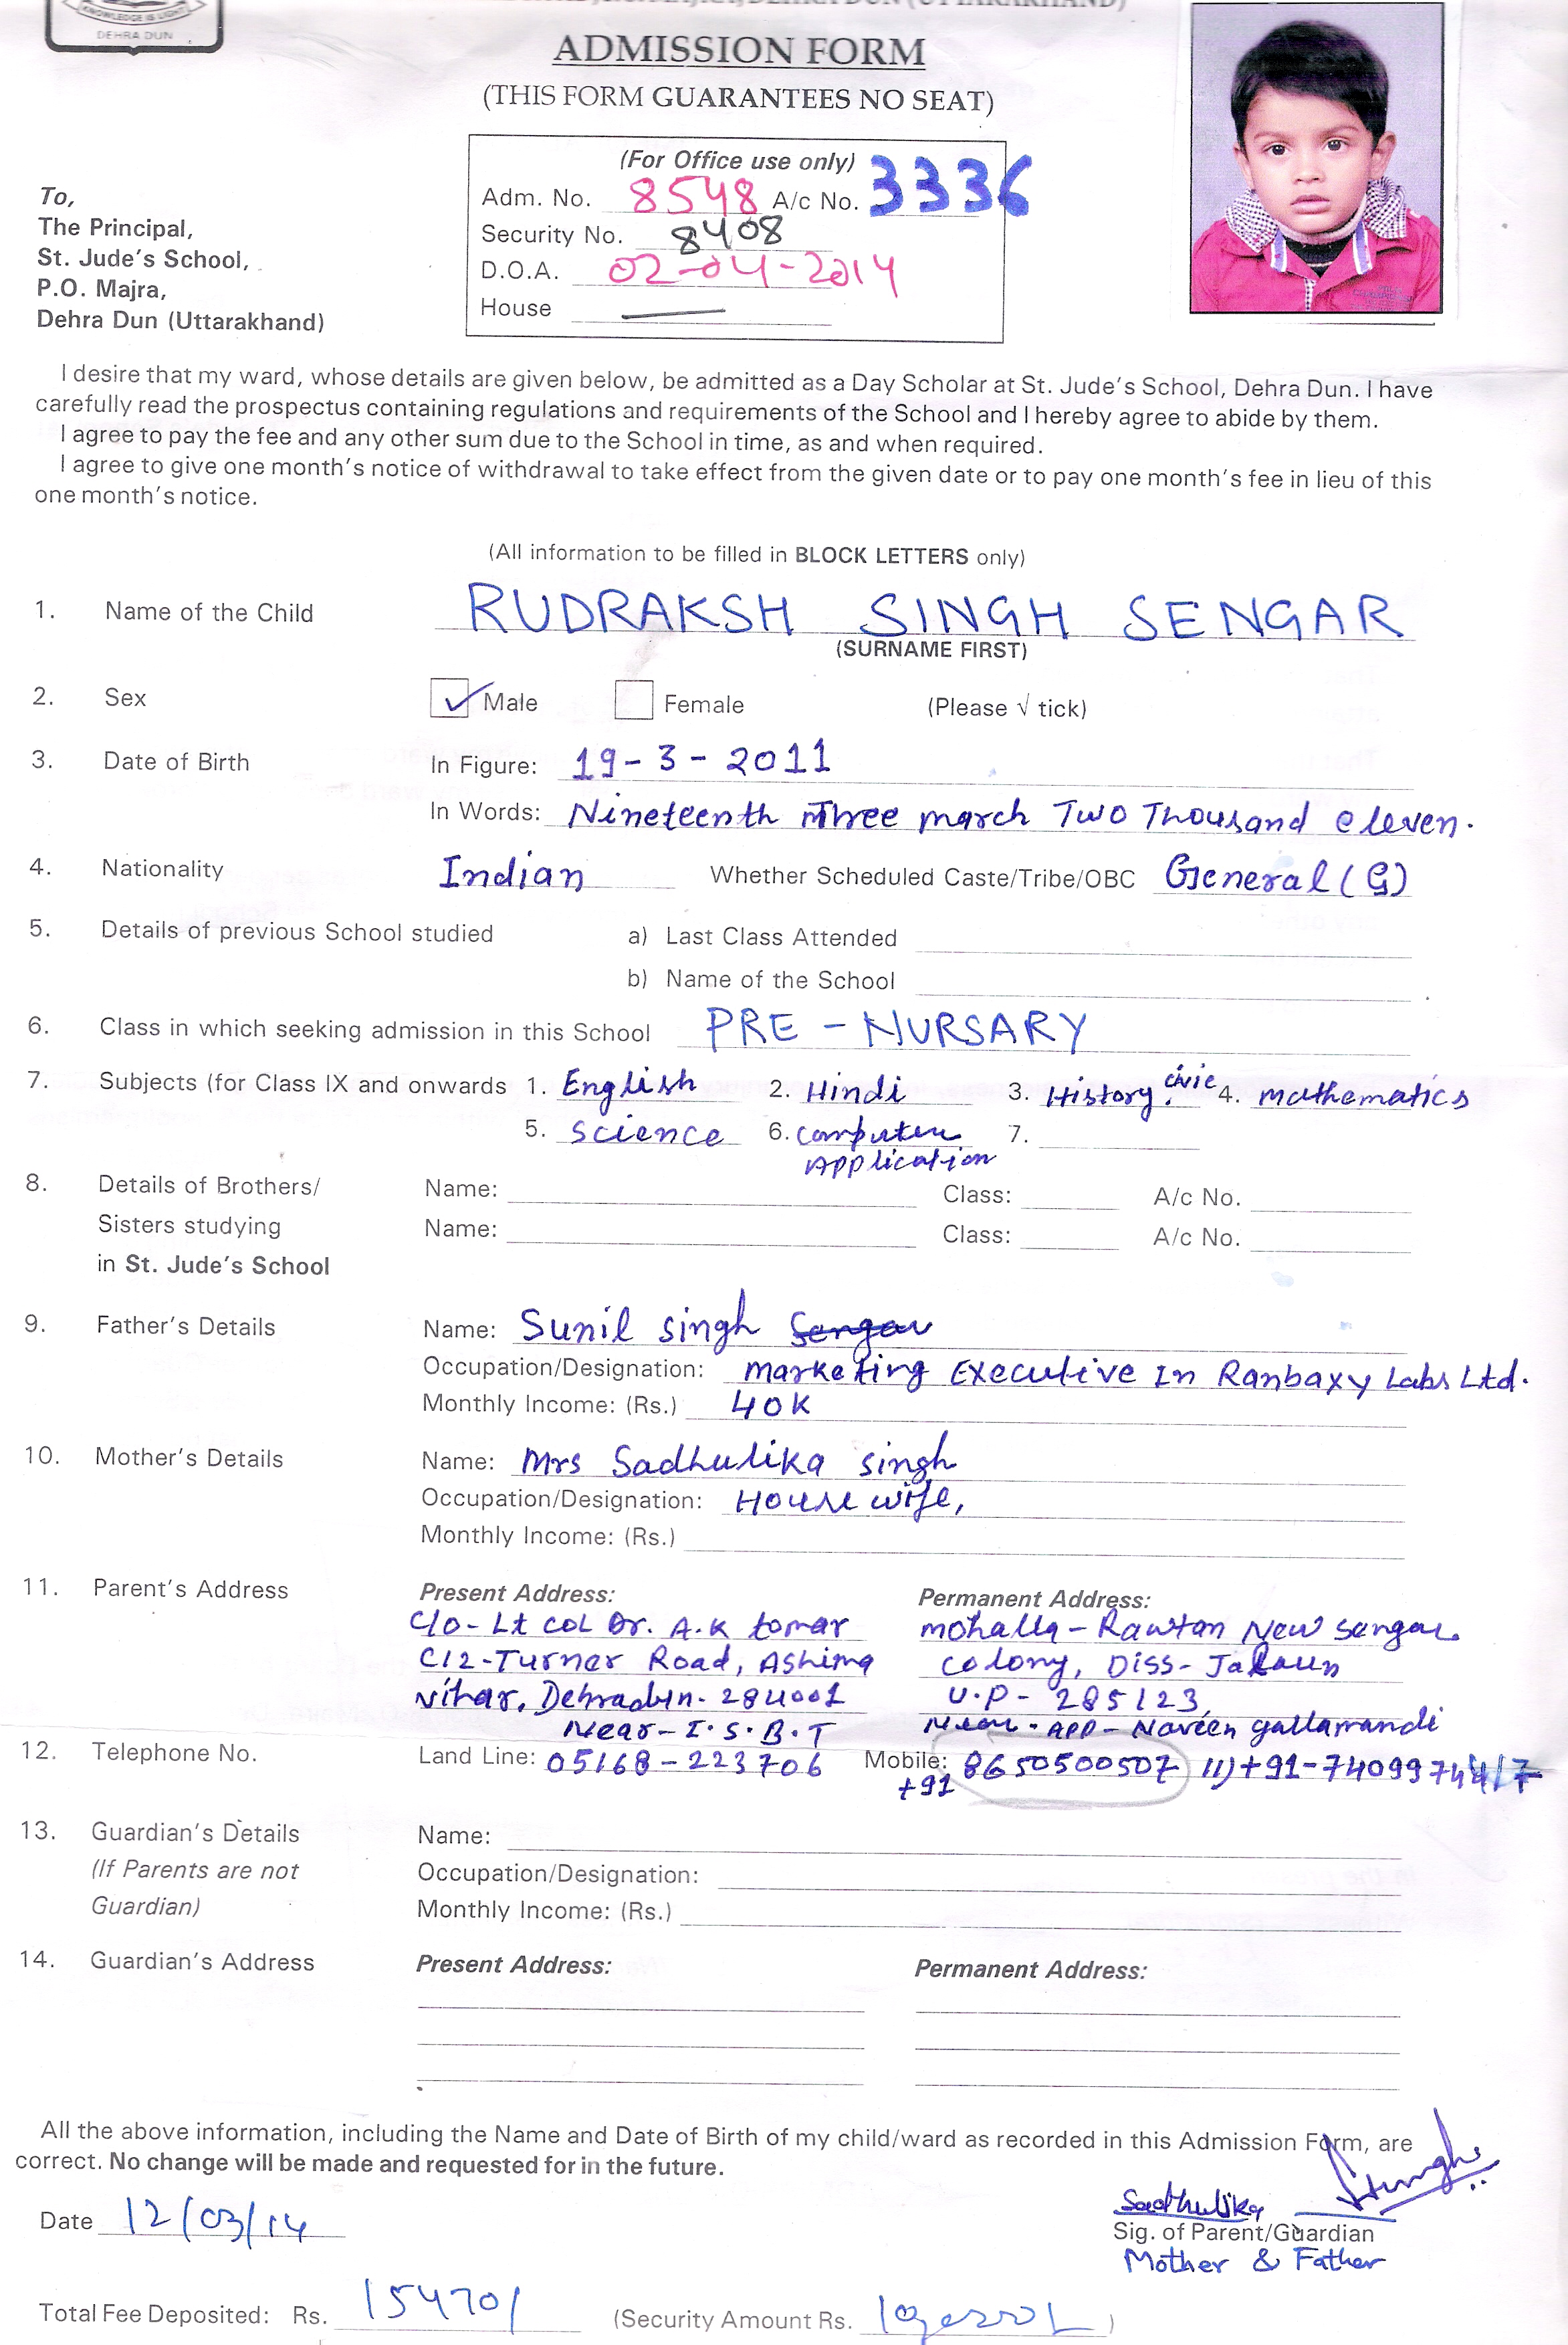 KNOWLEDGE IS LIGHT
DEHRA DUN
DEHRA DUN (UTTARAKHAND)
ADMISSION FORM
(THIS FORM GUARANTEES NO SEAT)
(For Office use only)
Adm. No. 8548 A/c No. 3336
Security No. 8408
D.O.A. 02-04-2014
House —
To,
The Principal,
St. Jude's School,
P.O. Majra,
Dehra Dun (Uttarakhand)
I desire that my ward, whose details are given below, be admitted as a Day Scholar at St. Jude's School, Dehra Dun. I have
carefully read the prospectus containing regulations and requirements of the School and I hereby agree to abide by them.
I agree to pay the fee and any other sum due to the School in time, as and when required.
I agree to give one month's notice of withdrawal to take effect from the given date or to pay one month's fee in lieu of this
one month's notice.
(All information to be filled in BLOCK LETTERS only)
1. Name of the Child RUDRAKSH SINGH SENGAR
(SURNAME FIRST)
2. Sex ✓ Male Female (Please √ tick)
3. Date of Birth In Figure: 19-3-2011
In Words: Nineteenth Three march Two Thousand eleven.
4. Nationality Indian Whether Scheduled Caste/Tribe/OBC General (G)
5. Details of previous School studied a) Last Class Attended
b) Name of the School
6. Class in which seeking admission in this School PRE - NURSARY
7. Subjects (for Class IX and onwards 1. English 2. Hindi 3. History. civic 4. mathematics
5. science 6. computer 7.
Application
8. Details of Brothers/ Name: Class: A/c No.
Sisters studying Name: Class: A/c No.
in St. Jude's School
9. Father's Details Name: Sunil singh Sengar
Occupation/Designation: marketing Executive In Ranbaxy Labs Ltd.
Monthly Income: (Rs.) 40K
10. Mother's Details Name: Mrs Sadhulika singh
Occupation/Designation: House wife,
Monthly Income: (Rs.)
11. Parent's Address Present Address: Permanent Address:
C/o- Lt COL Dr. A.K tomar mohalla - Rawtan New sengar
C12-Turner Road, Ashima colony, Diss- Jalaun
Vihar, Dehradun- 284001 U.P - 285123,
Near- I.S.B.T Near - APP - Naveen gallamandi
12. Telephone No. Land Line: 05168-223706 Mobile: +91 8650500507 11) +91-7409974417
13. Guardian's Details Name:
(If Parents are not Occupation/Designation:
Guardian) Monthly Income: (Rs.)
14. Guardian's Address Present Address: Permanent Address:
All the above information, including the Name and Date of Birth of my child/ward as recorded in this Admission Form, are
correct. No change will be made and requested for in the future.
Date 12/03/14 Sadhulika
Sig. of Parent/Guardian
Mother & Father
Total Fee Deposited: Rs. 15470/ (Security Amount Rs. )